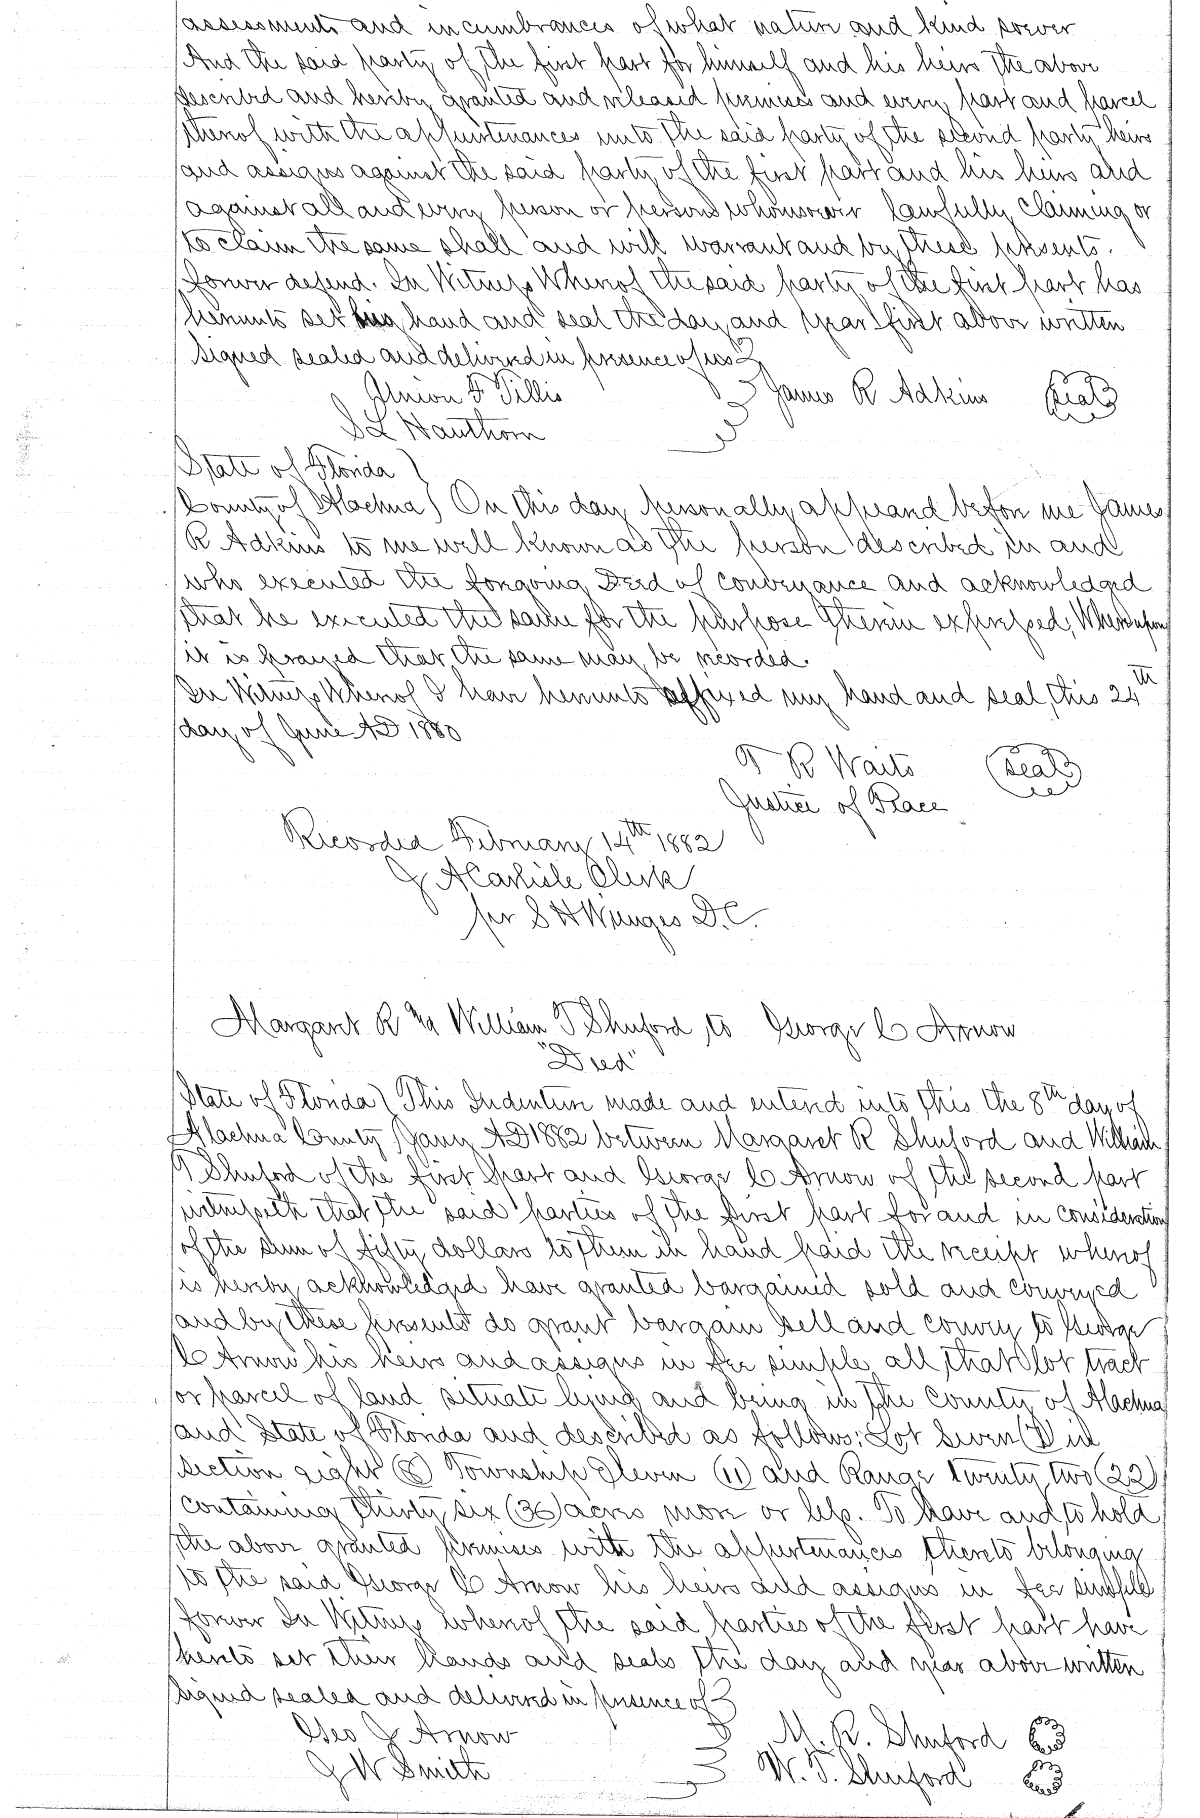 assessments and incumbrances of what nature and kind soever
And the said party of the first part for himself and his heirs the above
described and hereby granted and released premises and every part and parcel
thereof with the appurtenances unto the said party of the second party heirs
and assigns against the said party of the first part and his heirs and
against all and every person or persons whomsoever lawfully claiming or
to claim the same shall and will warrant and by these presents.
forever defend. In Witness Whereof the said party of the first part has
hereunto set his hand and seal the day and year first above written
Signed sealed and delivered in presence of us
F Tillis James R Adkins Seal
S L Hawthorn
State of Florida
County of Alachua) On this day personally appeared before me James
R Adkins to me well known as the person described in and
who executed the foregoing Deed of conveyance and acknowledged
that he executed the same for the purpose therein expressed, Whereupon
it is prayed that the same may be recorded.
In Witness Whereof I have hereunto affixed my hand and seal, this 24th
day of June AD 1880
T R Waits Seal
Justice of Peace
Recorded February 14th 1882
J A Carlisle Clerk
per S H Wienges D.C.
Margaret R & William T Shuford to George C Arnow
"Deed"
State of Florida ( This Indenture made and entered into this the 8th day of
Alachua County Jany AD 1882 between Margaret R Shuford and William
T Shuford of the first part and George C Arnow of the second part
witnesseth that the said parties of the first part for and in consideration
of the sum of fifty dollars to them in hand paid the receipt whereof
is hereby acknowledged have granted bargained sold and conveyed
and by these presents do grant bargain sell and convey to George
C Arnow his heirs and assigns in fee simple all that lot tract
or parcel of land situate lying and being in the county of Alachua
and State of Florida and described as follows: Lot Seven (7) in
Section eight (8) Township Eleven (11) and Range twenty two (22)
containing thirty six (36) acres more or less. To have and to hold
the above granted premises with the appurtenances thereto belonging
to the said George C Arnow his heirs and assigns in fee simple
forever In Witness whereof the said parties of the first part have
hereto set their hands and seals the day and year above written
Signed sealed and delivered in presence of
Geo J Arnow M. R. Shuford
J W Smith W. T. Shuford